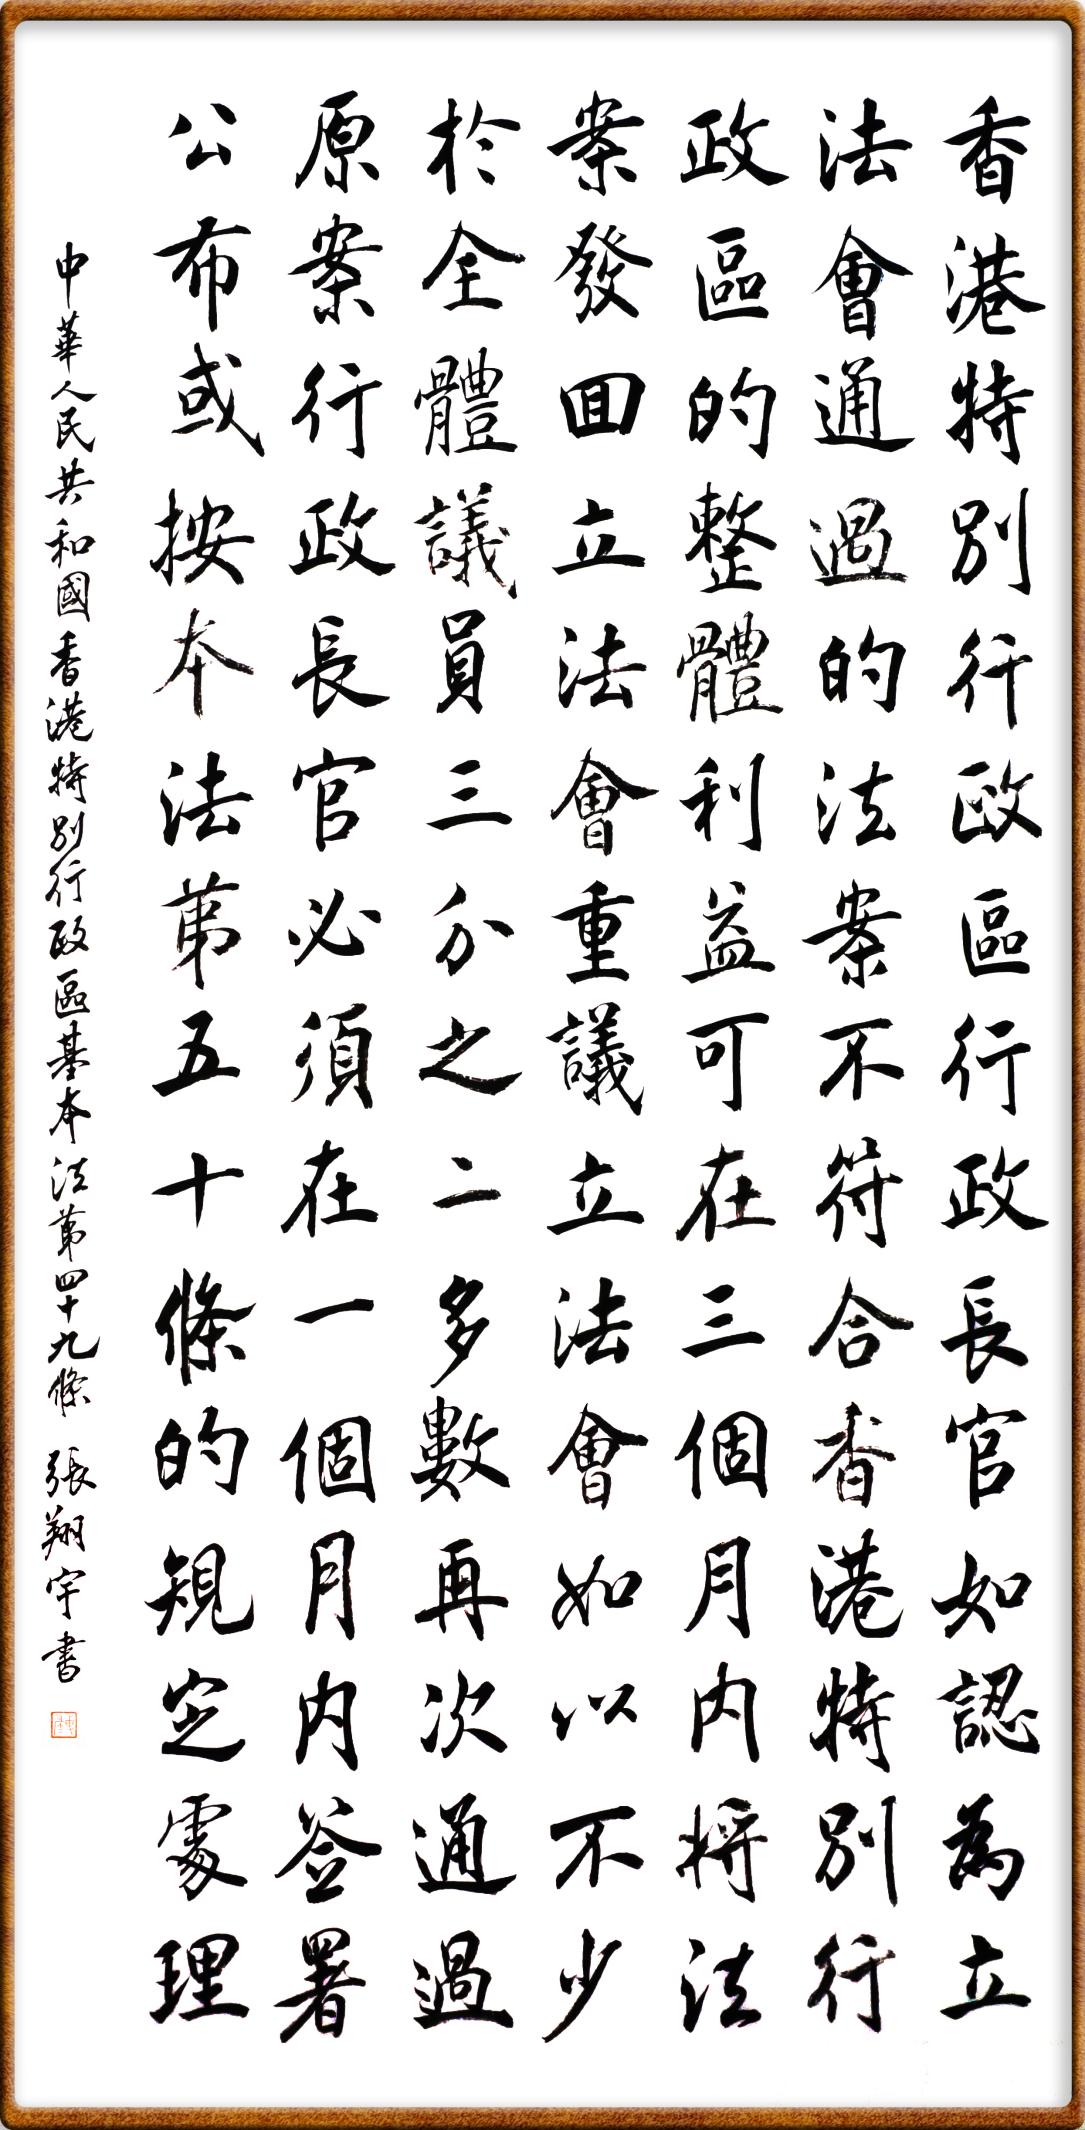 香港特別行政區行政長官如認為立
法會通過的法案不符合香港特別行
政區的整體利益可在三個月内將法
案發回立法會重議立法會如以不少
於全體議員三分之二多數再次通過
原案行政長官必須在一個月内签署
公布或按本法第五十條的規定處理
中華人民共和國香港特別行政區基本法第四十九條 張翔宇書